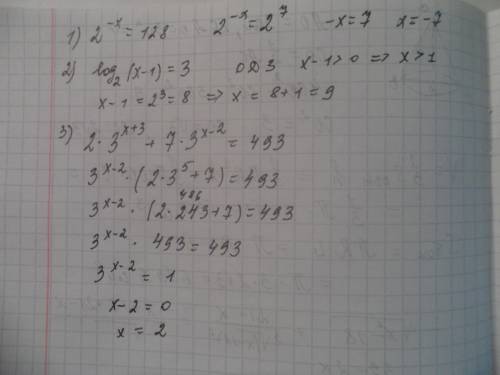 1) 2^{-x} = 128   2^{-x} = 2^7   -x = 7   x = -7
2) log_2 (x-1) = 3   ОДЗ   x-1 > 0 => x > 1
x-1 = 2^3 = 8 => x = 8+1 = 9
3) 2·3^{x+3} + 7·3^{x-2} = 493
3^{x-2} · (2·3^5 + 7) = 493
486
3^{x-2} · (2·243 + 7) = 493
3^{x-2} · 493 = 493
3^{x-2} = 1
x-2 = 0
x = 2